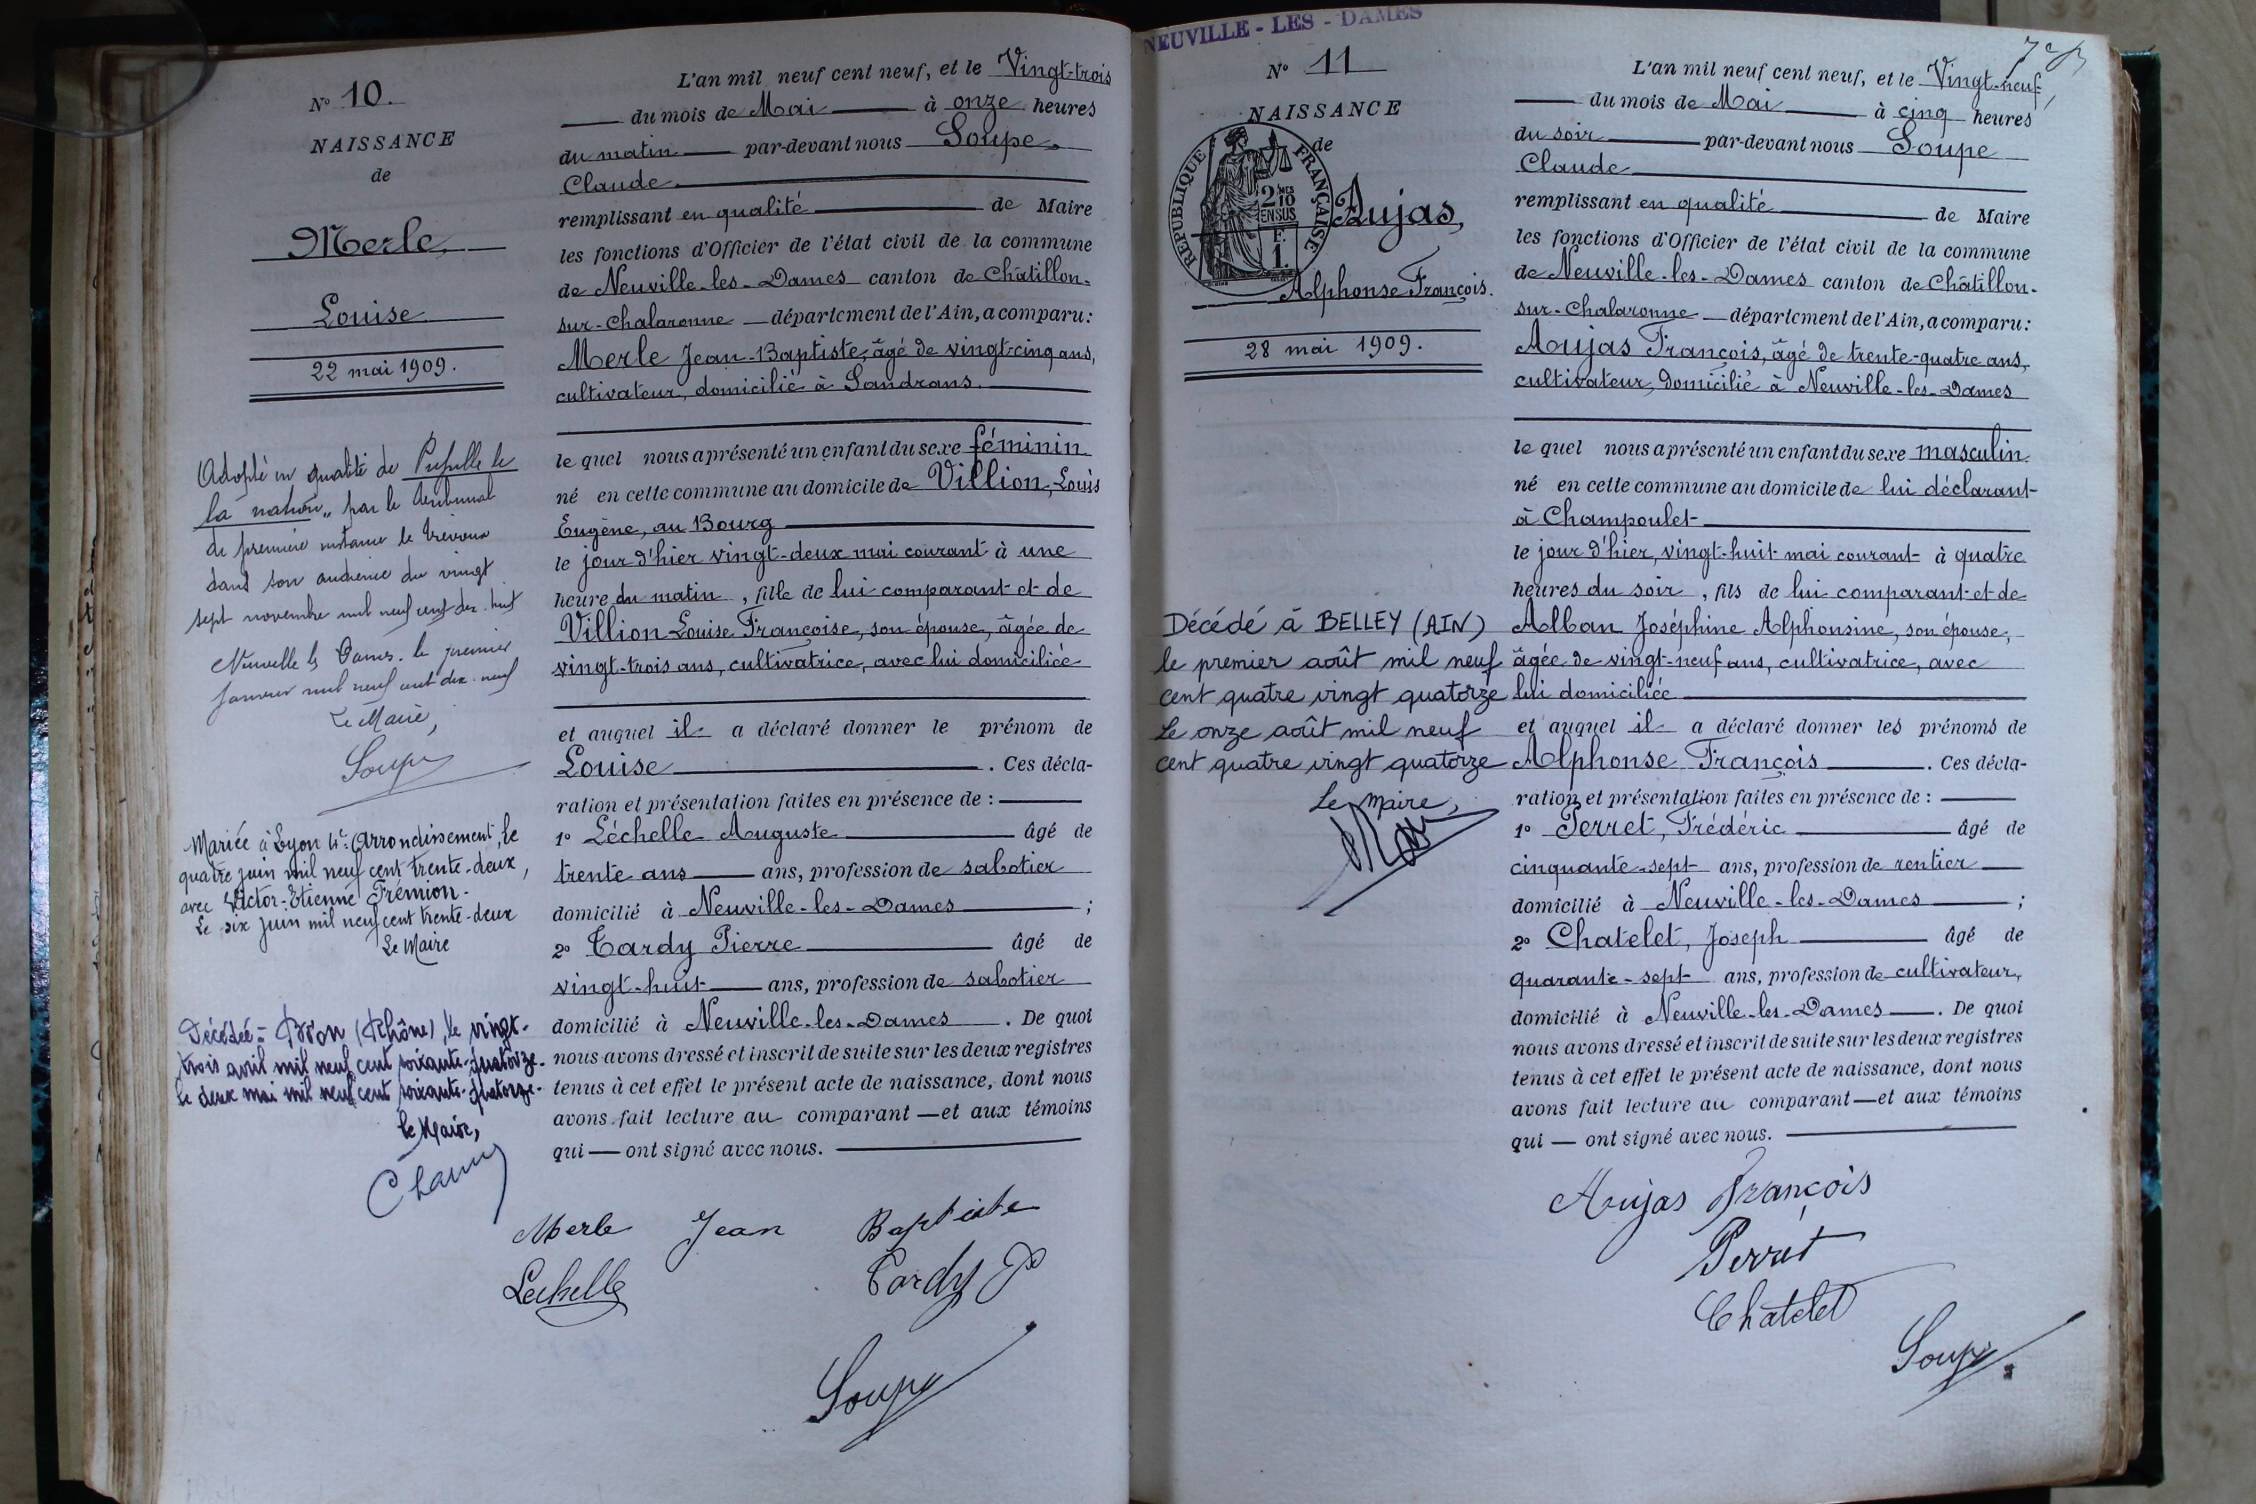 N° 10.
NAISSANCE
de
Merle
Louise
22 mai 1909.
Adopté en qualité de Pupille de
la nation„ par le tribunal
de première instance de Trévoux
dans son audience du vingt
sept novembre mil neuf cent dix-huit
Neuville les Dames, le premier
Janvier mil neuf cent dix-neuf
Le Maire,
Soupe
Mariée à Lyon 4e Arrondissement, le
quatre juin mil neuf cent trente-deux,
avec Victor-Etienne Frémion.
Le six juin mil neuf cent trente-deux
Le Maire
Décédée - Bron (Rhône), le vingt-
trois avril mil neuf cent soixante-quatorze.
Le deux mai mil neuf cent soixante-quatorze-
le Maire,
L'an mil neuf cent neuf, et le Vingt-trois
du mois de Mai à onze heures
du matin par-devant nous Soupe
Claude
remplissant en qualité de Maire
les fonctions d'Officier de l'état civil de la commune
de Neuville-les-Dames canton de Châtillon-
sur-Chalaronne département de l'Ain, a comparu:
Merle Jean-Baptiste, âgé de vingt-cinq ans,
cultivateur, domicilié à Sandrans
le quel nous a présenté un enfant du sexe féminin
né en cette commune au domicile de Villion, Louis
Eugène, au Bourg
le jour d'hier vingt-deux mai courant à une
heure du matin, fille de lui comparant et de
Villion Louise Françoise, son épouse, âgée de
vingt-trois ans, cultivatrice, avec lui domiciliée
et auquel il a déclaré donner le prénom de
Louise . Ces décla-
ration et présentation faites en présence de :
1° Léchelle Auguste âgé de
trente ans ans, profession de sabotier
domicilié à Neuville-les-Dames ;
2° Tardy Pierre âgé de
vingt-huit ans, profession de sabotier
domicilié à Neuville-les-Dames . De quoi
nous avons dressé et inscrit de suite sur les deux registres
tenus à cet effet le présent acte de naissance, dont nous
avons fait lecture au comparant et aux témoins
qui ont signé avec nous.
Merle Jean Baptiste
Lechelle Tardy P
Soupe
NEUVILLE-LES-DAMES
N° 11
NAISSANCE
de
RÉPUBLIQUE FRANÇAISE
2/10 EN SUS
F. 1.
Aujas,
Alphonse François.
28 mai 1909.
Décédé à BELLEY (AIN)
le premier août mil neuf
cent quatre vingt quatorze
Le onze août mil neuf
cent quatre vingt quatorze
Le Maire,
L'an mil neuf cent neuf, et le Vingt-neuf
du mois de Mai à cinq heures
du soir par-devant nous Soupe
Claude
remplissant en qualité de Maire
les fonctions d'Officier de l'état civil de la commune
de Neuville-les-Dames canton de Châtillon-
sur-Chalaronne département de l'Ain, a comparu:
Aujas François, âgé de trente-quatre ans,
cultivateur, domicilié à Neuville-les-Dames
le quel nous a présenté un enfant du sexe masculin
né en cette commune au domicile de lui déclarant
à Champoulet
le jour d'hier, vingt-huit mai courant à quatre
heures du soir, fils de lui comparant et de
Alban Joséphine Alphonsine, son épouse,
âgée de vingt-neuf ans, cultivatrice, avec
lui domiciliée
et auquel il a déclaré donner les prénoms de
Alphonse François . Ces décla-
ration et présentation faites en présence de :
1° Perret, Frédéric âgé de
cinquante-sept ans, profession de rentier
domicilié à Neuville-les-Dames ;
2° Chatelet, Joseph âgé de
quarante-sept ans, profession de cultivateur,
domicilié à Neuville-les-Dames . De quoi
nous avons dressé et inscrit de suite sur les deux registres
tenus à cet effet le présent acte de naissance, dont nous
avons fait lecture au comparant et aux témoins
qui ont signé avec nous.
Aujas François
Perret
Châtelet
Soupe